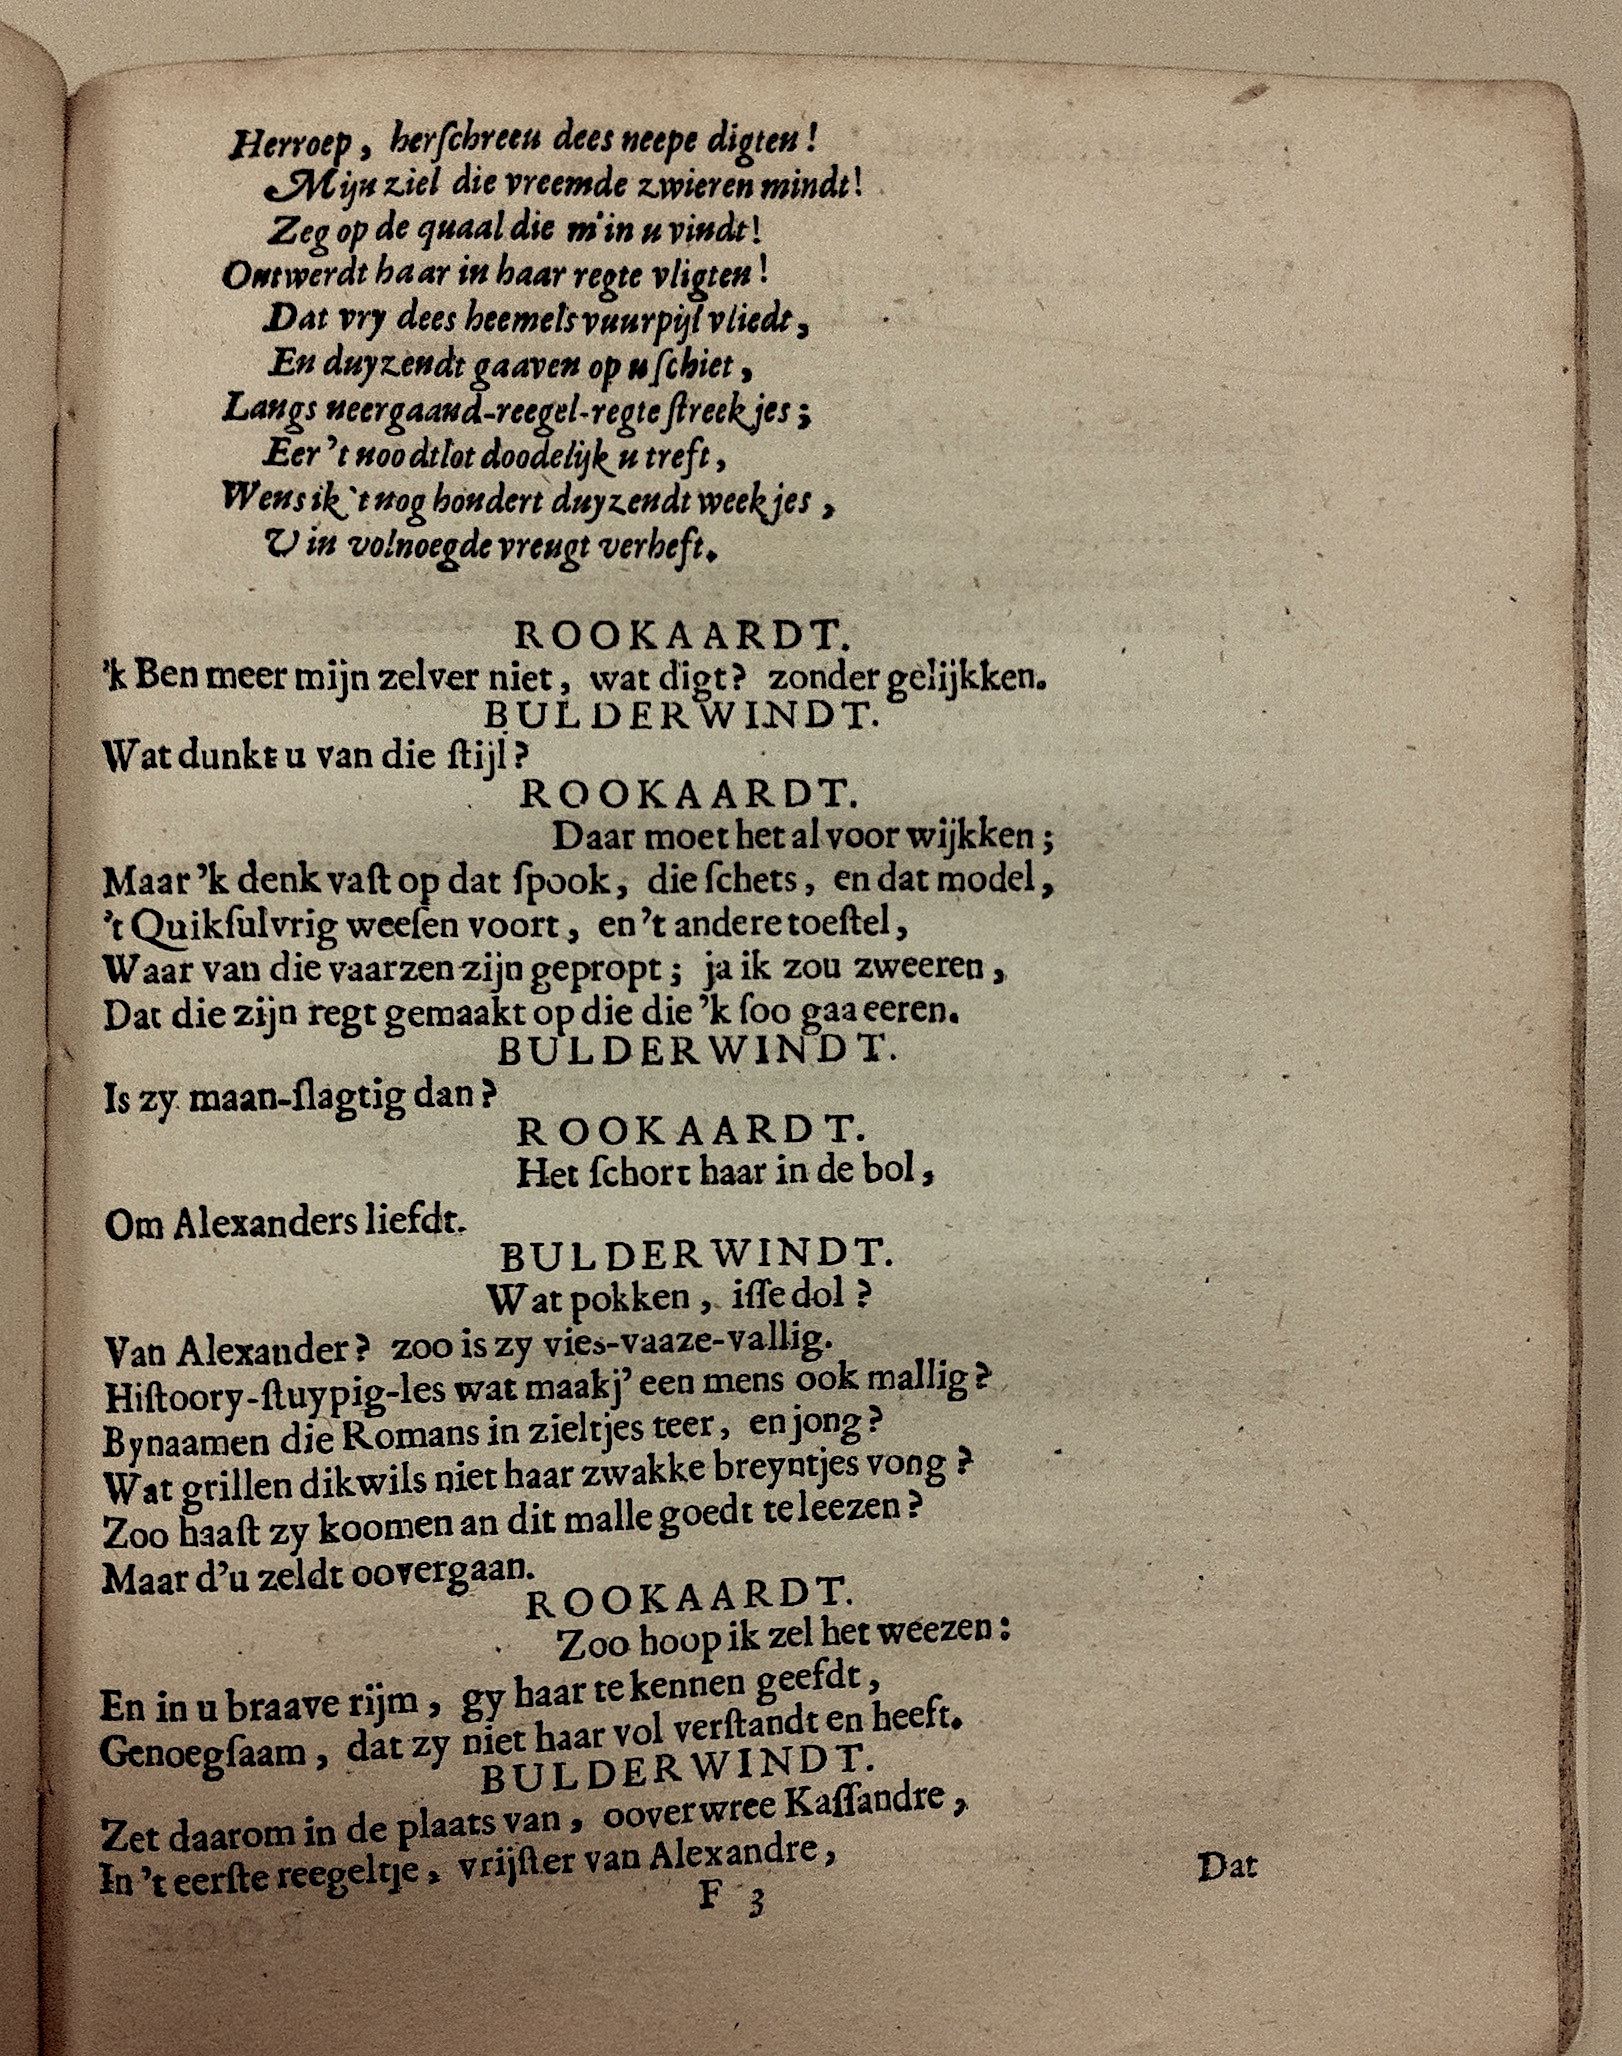 Herroep, herſchreeu dees neepe digten!
Mijn ziel die vreemde zwieren mindt!
Zeg op de quaal die m'in u vindt!
Ontwerdt haar in haar regte vligten!
Dat vry dees heemels vuurpijl vliedt,
En duyzendt gaaven op u ſchiet,
Langs neergaand-reegel-regte ſtreekjes;
Eer 't noodtlot doodelijk u treft,
Wens ik 't nog hondert duyzendt weekjes,
U in volnoegde vreugt verheft.
ROOKAARDT.
'k Ben meer mijn zelver niet, wat digt? zonder gelijkken.
BULDERWINDT.
Wat dunkt u van die ſtijl?
ROOKAARDT.
Daar moet het al voor wijkken;
Maar 'k denk vaſt op dat ſpook, die ſchets, en dat model,
't Quikſulvrig weeſen voort, en 't andere toeſtel,
Waar van die vaarzen zijn gepropt; ja ik zou zweeren,
Dat die zijn regt gemaakt op die die 'k ſoo gaa eeren.
BULDERWINDT.
Is zy maan-ſlagtig dan?
ROOKAARDT.
Het ſchort haar in de bol,
Om Alexanders liefdt.
BULDERWINDT.
Wat pokken, iſſe dol?
Van Alexander? zoo is zy vies-vaaze-vallig.
Hiſtoory-ſtuypig-les wat maakj' een mens ook mallig?
Bynaamen die Romans in zieltjes teer, en jong?
Wat grillen dikwils niet haar zwakke breyntjes vong?
Zoo haaſt zy koomen an dit malle goedt te leezen?
Maar d'u zeldt oovergaan.
ROOKAARDT.
Zoo hoop ik zel het weezen:
En in u braave rijm, gy haar te kennen geefdt,
Genoegſaam, dat zy niet haar vol verſtandt en heeft.
BULDERWINDT.
Zet daarom in de plaats van, ooverwree Kaſſandre,
In 't eerſte reegeltje, vrijſter van Alexandre,
F 3 Dat